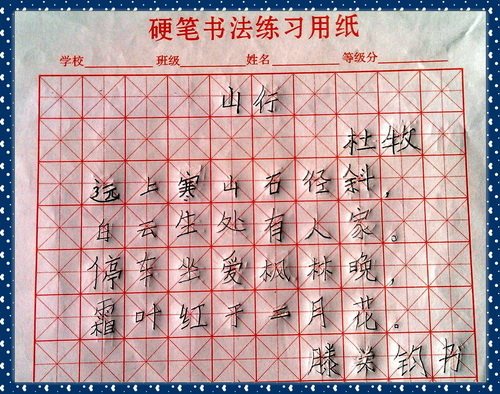 硬笔书法练习用纸
学校 班级 姓名 等级分
山行
杜牧
远上寒山石径斜,
白云生处有人家。
停车坐爱枫林晚,
霜叶红于二月花。
滕 书